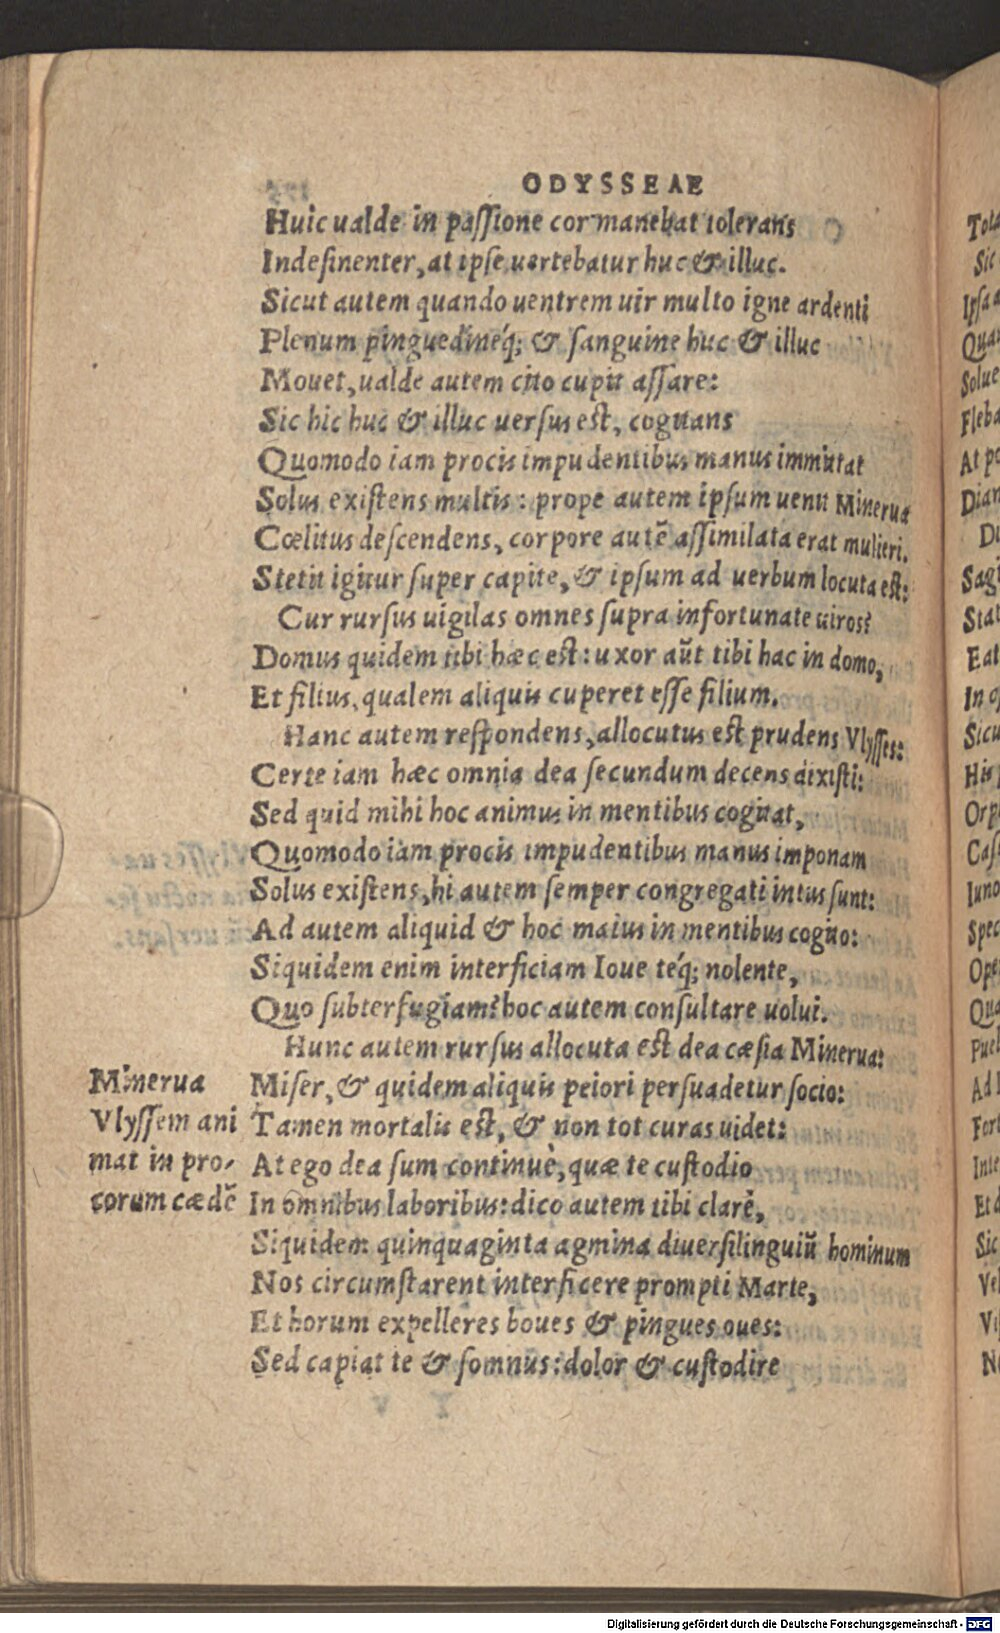 ODYSSEAE
Huic ualde in passione cor manebat tolerans
Indesinenter, at ipse uertebatur huc & illuc.
Sicut autem quando uentrem uir multo igne ardenti
Plenum pinguedineq́; & sanguine huc & illuc
Mouet, ualde autem cito cupit assare:
Sic hic huc & illuc uersus est, cogitans
Quomodo iam procis impudentibus manus immittat
Solus existens multis: prope autem ipsum uenit Minerua
Cœlitus descendens, corpore autē assimilata erat mulieri.
Stetit igitur super capite, & ipsum ad uerbum locuta est:
Cur rursus uigilas omnes supra infortunate uiros?
Domus quidem tibi hæc est: uxor aūt tibi hac in domo,
Et filius, qualem aliquis cuperet esse filium.
Hanc autem respondens, allocutus est prudens Vlysses:
Certe iam hæc omnia dea secundum decens dixisti:
Sed quid mihi hoc animus in mentibus cogitat,
Quomodo iam procis impudentibus manus imponam
Solus existens, hi autem semper congregati intus sunt:
Ad autem aliquid & hoc maius in mentibus cogito:
Siquidem enim interficiam Ioue teq́; nolente,
Quo subterfugiam? hoc autem consultare uolui.
Hunc autem rursus allocuta est dea cæsia Minerua:
Miser, & quidem aliquis peiori persuadetur socio:
Tamen mortalis est, & non tot curas uidet:
At ego dea sum continuè, quæ te custodio
In omnibus laboribus: dico autem tibi clarè,
Siquidem quinquaginta agmina diuersilinguiū hominum
Nos circumstarent interficere prompti Marte,
Et horum expelleres boues & pingues oues:
Sed capiat te & somnus: dolor & custodire
Minerua
Vlyssem ani
mat in pro-
corum cædē
Tot
Sic
Ipsa
Qua
Solue
Fleba
At po
Dian
Di
Sagi
Stat
Eat
In
Sicu
His
Orp
Cas
Iuno
Spec
Ope
Qua
Puel
Ad
Fort
Inte
Et
Sic
Ve
Vi
N
Digitalisierung gefördert durch die Deutsche Forschungsgemeinschaft - DFG